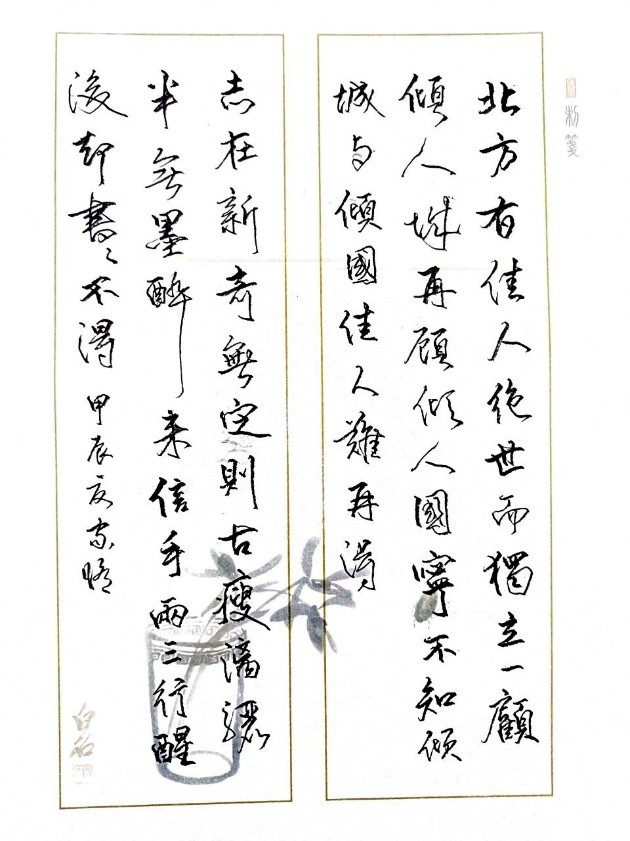 粉箋
北方有佳人绝世而獨立一顧
傾人城再顾倾人國寧不知倾
城与傾國佳人難再得
志在新奇無定則古瘦漓驪
半無墨醉来信手兩三行醒
後却書々不得 甲辰夏
白石